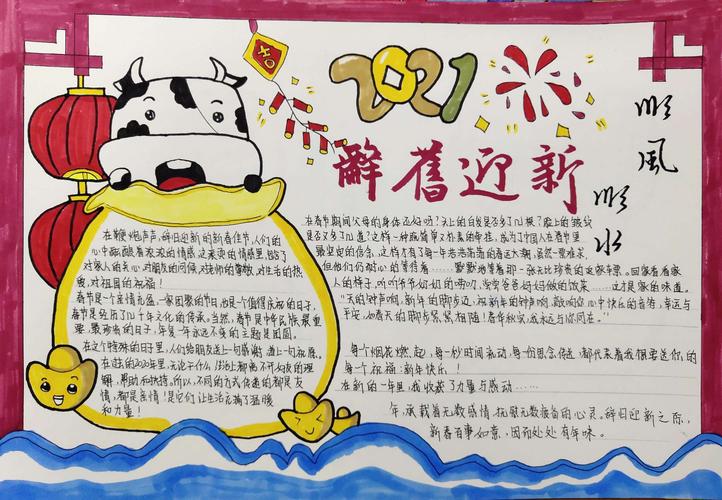 吉
2021
辭舊迎新
順風
順水
在鞭炮声声,辞旧迎新的新春佳节,人们的
心中都酿着浓浓的情感,这亲爱的情感里,饱含了
对家人的关心,对朋友的问候,对老师的尊敬,对生活的热
爱,对祖国的祝福!
春节是一个亲情礼盒,一家团聚的节日,也是个值得庆祝的日子,
春节是经历了几千年文化的传承。当然,春节是中华民族最重
要,最珍贵的日子,年复一年永远不变的主题是团圆。
在这个特殊的日子里,人们给朋友送上一句感谢,道上一句祝愿。
在过去的2020年里,无论干什么,都离不开朋友的理
解,帮助和扶持。所以,不同的方式传递的都是友
情,都是亲情!是它们让生活充满了温暖
和力量!
在春节期间父母的身体还好吗?头上的白发是否多了几根?脸上的皱纹
是否又多了几道?这样一种既简单又朴素的牵挂,成为了中国人在春节里
最坚定的信念,这样才有了每一年浩浩荡荡的春运大潮,虽然一票难求,
但他们仍耐心的等待着……默默地等着那一张无比珍贵的返家车票。回家看看家
人的样子,听听爷爷奶奶的唠叨,尝尝爸爸妈妈做的饭菜……这才是家的味道。
“天的钟声响,新年的脚步迈,祝新年的钟声响,敲响你心中快乐的音符,幸运与
平安,如春天的脚步紧紧相随!春华秋实,我永远与你同在。”
每个烟花燃起,每一秒时间流动,每一份思念传送,都代表着我想要送你的
每个祝福:新年快乐!
在新的一年里,我收获了力量与感动……
年,承载着无数感情,抚慰无数疲备的心灵。辞旧迎新之际,
新春百事如意,因而处处有年味。